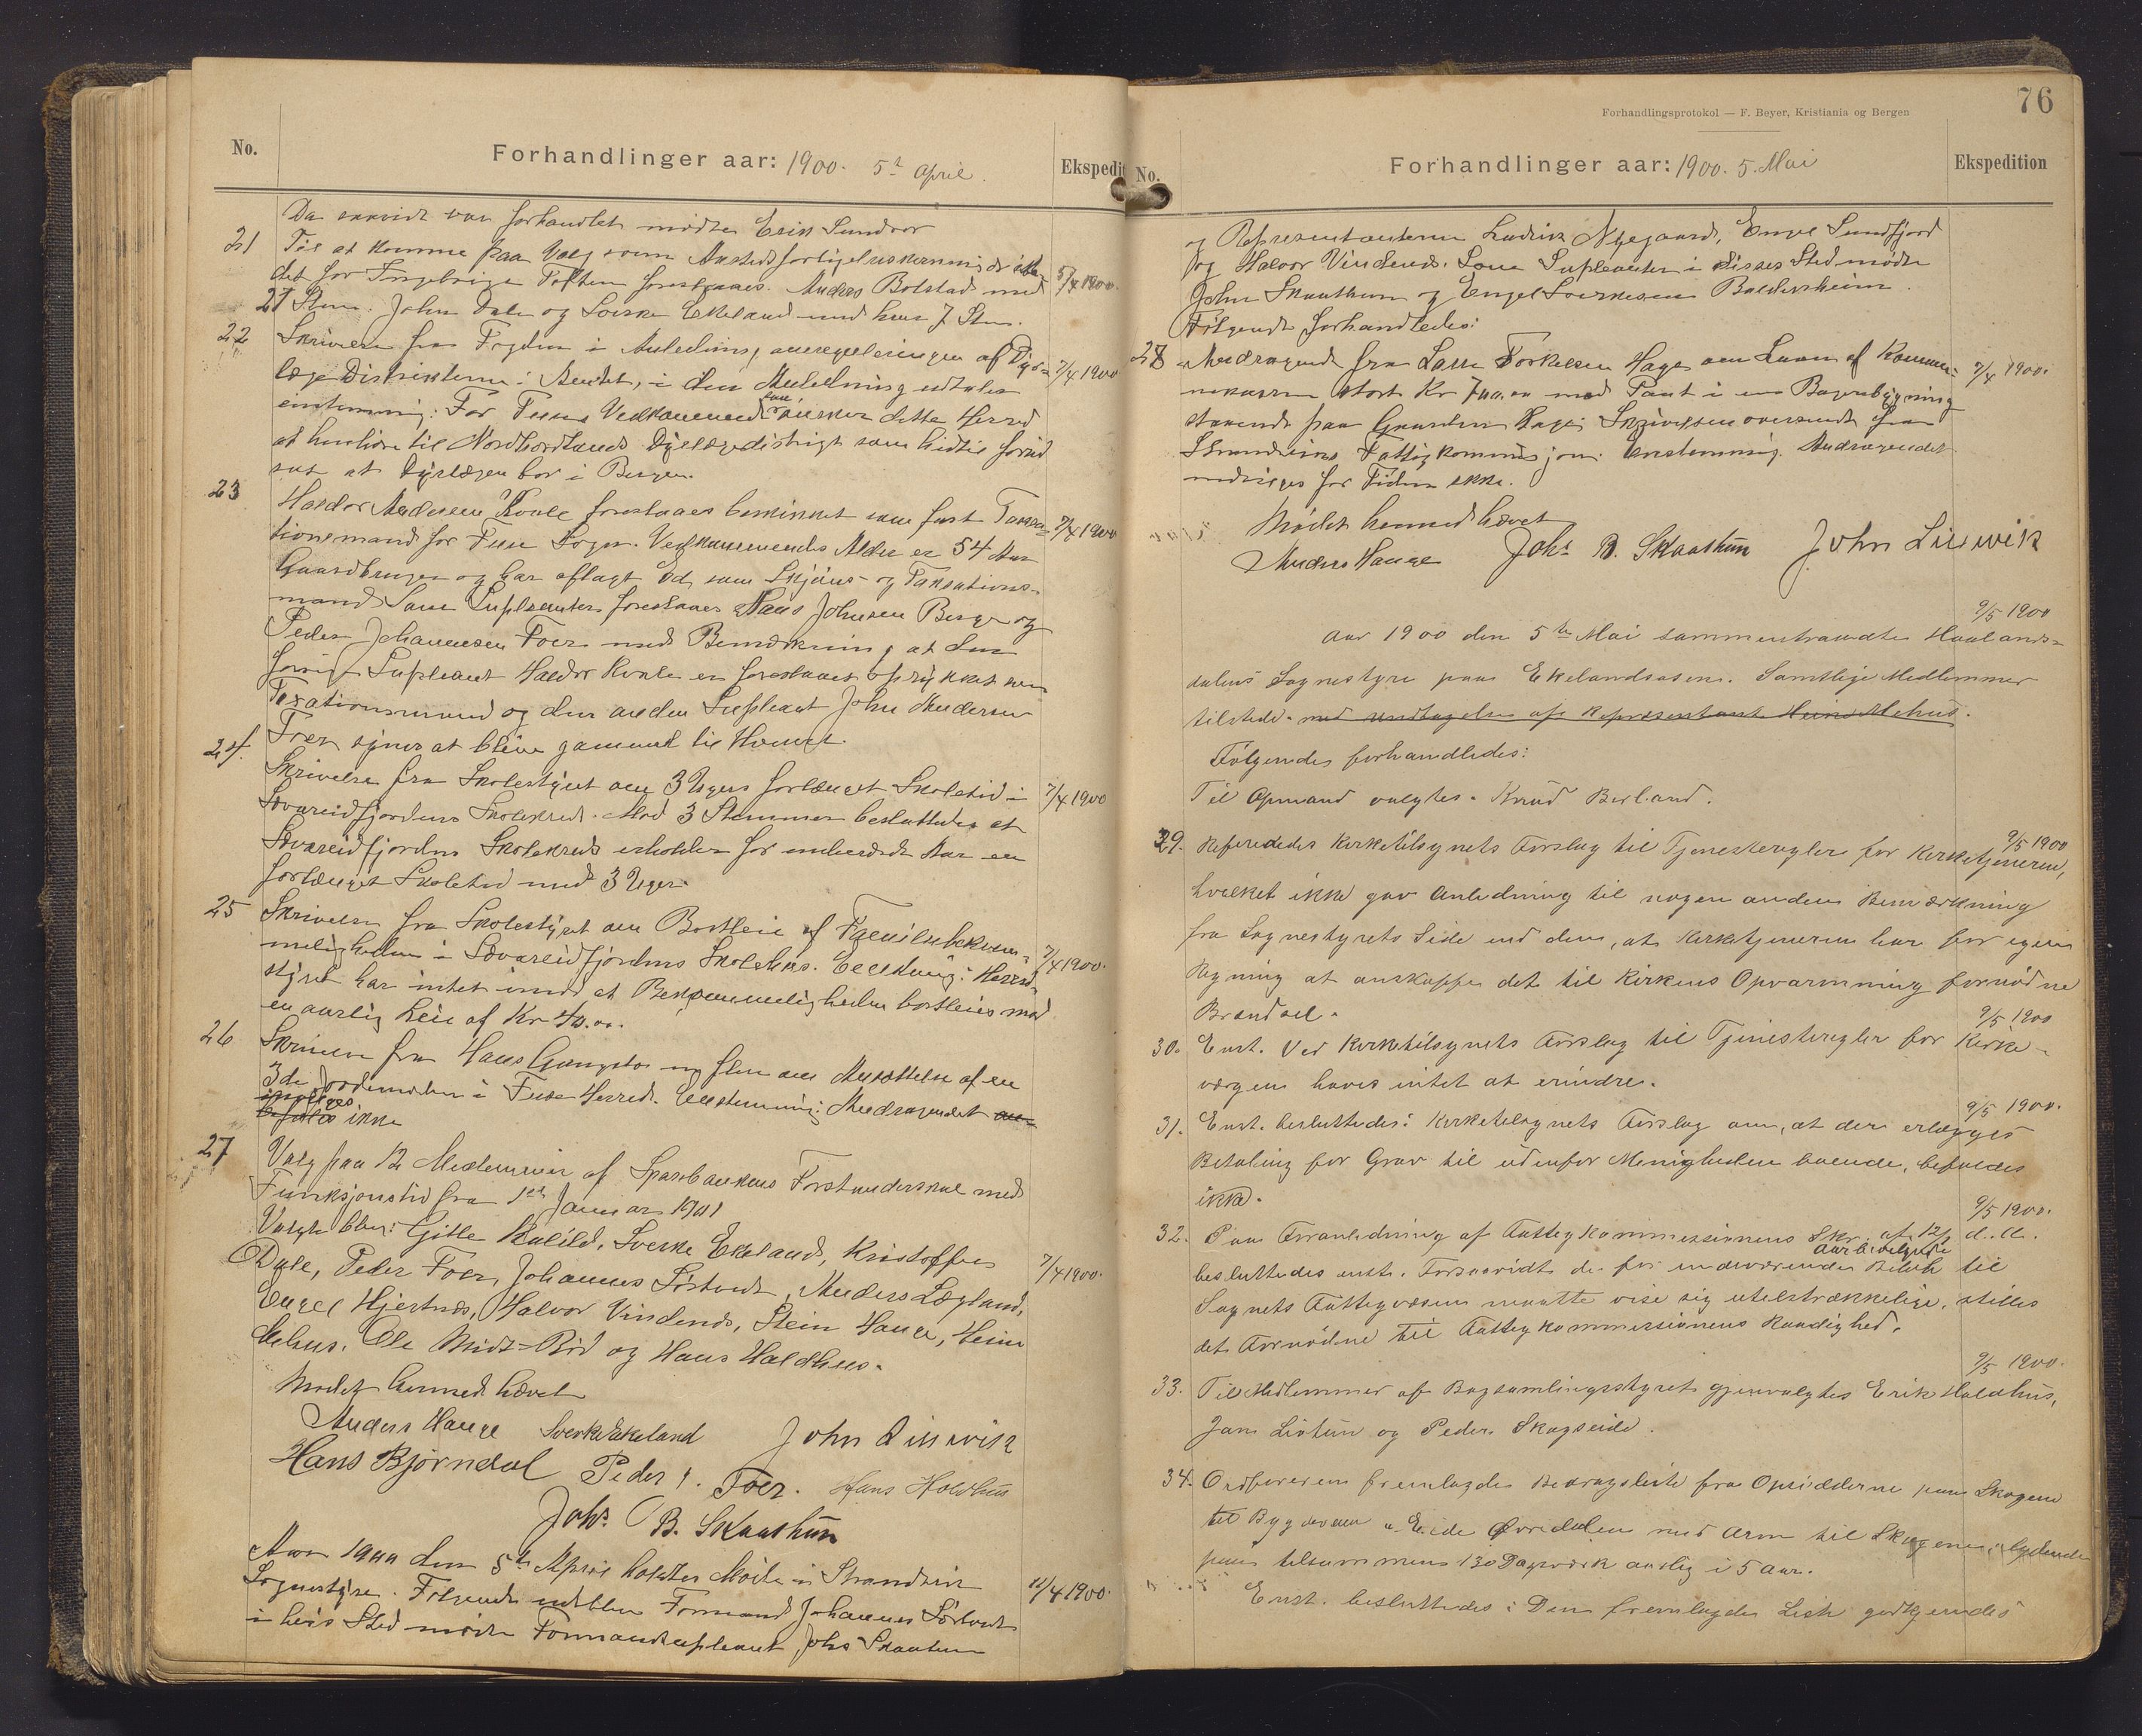 No.
Forhandlinger aar: 1900. 5te april.
Ekspedit
Da saavidt var forhandlet mødte Erik Sundvor
21 Til at komme paa Valg som
det for Ingebrigt foreslaaes. Anders Bolstad med 5/4 1900.
21 Stem. John Dale og Sverke Ekeland med hver 7 Stem.
22 Skrivelse fra Fogden i Anledning omreguleringen af Dyr-
læge Distrikterne i Amtet, i den Anledning udtales 7/4 1900
enstemmig: For Fuses Vedkommende ønsker dette Herred
at henhøre til Nordhordlands Dyrlægedistrigt som hidtil forud
sat at Dyrlægen bor i Bergen.
23 Haldor Andersen Kvale foreslaaes beskikket som fast Taxa-
tionsmand for Fuse Sogn. Vedkommendes Alder er 54 Aar 7/4 1900
Gaardbruger og har aflagt Ed som Skjøns- og Taksations-
mand Som Supleanter foreslaaes Hans Johnsen Berge og
Peder Johannesen Foer med Bemærkning at den
forrige Supleant Haldor Kvale er foreslaaet oprykket som
Taxationsmand og den anden Supleant John Andersen
Foer synes at blive gammel til Hvervet.
24. Skrivelse fra Skolestyret om 3 Ugers forlænget Skoletid i
Sævareidfjordens Skolekreds. Mod 3 Stemmer besluttedes at 7/4 1900
Sævareidfjordens Skolekreds erholder for indeværende Aar en
forlænget Skoletid med 3 Uger.
25 Skrivelse fra Skolestyret om Bortleie af Familiebekvem-
meligheden i Sævareidfjordens Skolehus. Eenstemmig: Herred- 7/4 1900.
styret har intet imod at Bekvemmeligheden bortleies mod
en aarlig Leie af Kr 40.00.
26 Skrivelse fra Hans Gangstø og flere om Ansættelse af en
3die Jordemoder i Fuse Herred. Eenstemmig: Andragendet
ikke
27 Valg paa 12 Medlemmer af Sparebankens Forstanderskab med
Funksjonstid fra 1ste Januar 1901
Valgte blev: Gitle Kalild, Sverke Ekeland, Kristoffer
Dale, Peder Foer, Johannes Sørtvedt, Anders Lægland, 7/4 1900.
Engel Hjertnæs, Halvor Vindenes, Stein Hauge, Heine
Mehus, Ole Midt-Bø og Hans Haldhus.
Mødet hermed hævet
Anders Hauge Sverke Ekeland John Linevik
Hans Bjørndal Peder J. Foer. Hans Holdhus
Johs. B. Skaathun
Aar 1900 den 5te April holdtes Møde i Strandvik
Sognestyre. Følgende udeblev Formand Johannes Sørtvedt 11/4 1900.
i hvis Sted mødte Formandsupleant Johs Skaatun
76
Forhandlingsprotokol — F. Beyer, Kristiania og Bergen
No.
Forhandlinger aar: 1900. 5. Mai
Ekspedition
og Representanterne Ludvik Nygaard, Engel Sundfjord
og Halvor Vindenes. Som Supleanter i disses Sted mødte
John Skaathun og Engel Sverkesen Baldersheim.
Følgende forhandledes:
28 Andragende fra Lasse Torkelsen Hage om Laan af Kommu-
nekassen stort Kr med Pant i en Vaaningsbygning 7/4 1900.
staaende paa Gaarden Hage. Skrivelsen oversendt fra
Strandviks Fattigkommisjon. Enstemmig. Andragendet
indvilges for Tiden ikke.
Mødet hermed hævet
Anders Hauge Johs B. Skaathun John Linevik
9/5 1900
Aar 1900 den 5te Mai sammentraadte Haalands-
dalens Sognestyre paa Ekelandsosen. Samtlige Medlemmer
tilstede. med undtagelse af Representant Heine Mehus.
Følgendes forhandledes:
Til Opmand valgtes. Knud Berland.
29. Refereredes Kirketilsynets Forslag til Tjenesteregler for Kirketjeneren, 9/5 1900
hvilket ikke gav Anledning til nogen anden Bemærkning
fra Sognestyrets Side end den, at Kirketjeneren har for egen
Regning at anskaffe det til Kirkens Opvarmning fornødne
Brændsel. 9/5 1900
30. Enst. Ved Kirketilsynets Forslag til Tjenesteregler for Kirke-
værgen haves intet at erindre.
9/5 1900.
31. Enst. besluttedes: Kirketilsynets Forslag om, at der erlægges
Betaling for Grav til udenfor Menigheden boende, befaldes
ikke.
9/5 1900.
32. Paa Foranledning af Fattigkommissionens Skr. af 12/ d. A.
besluttedes enst. Forsaavidt de for indeværende Aar bevilgede Beløb til
Sognets Fattigvæsen maatte vise sig utilstrækkelige, stilles
det Fornødne til Fattigkommissionens Raadighed.
9/5 1900.
33. Til Medlemmer af Bogsamlingsstyret gjenvalgtes Erik Haldhus,
Jan Livtun og Peder Skogseide.
34. Ordføreren fremlagde Bidragsliste fra Opsidderne paa Skogene
til Bygdeveien Eide Øvredalen med Arm til Skogene, lydende
paa tilsammens 130 Dagsværk aarlig i 5 Aar.
Enst. besluttedes: Den fremlagde Liste godkjendes